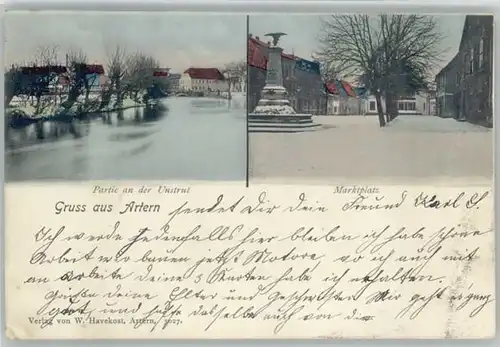 Partie an der Unstrut
Marktplatz
Gruss aus Artern sendet Dir Dein Freund Karl S.
Ich werde jedenfalls hier bleiben ich habe schöne
Arbeit wir bauen jetzt Motore, wo ich auch mit
an Arbeite deine 3 Karten habe ich erhalten.
Grüße deine Elter und Geschwister Mir geht es ganz
gut, und hoffe dasselbe auch von dir
Verlag von W. Havekost, Artern.